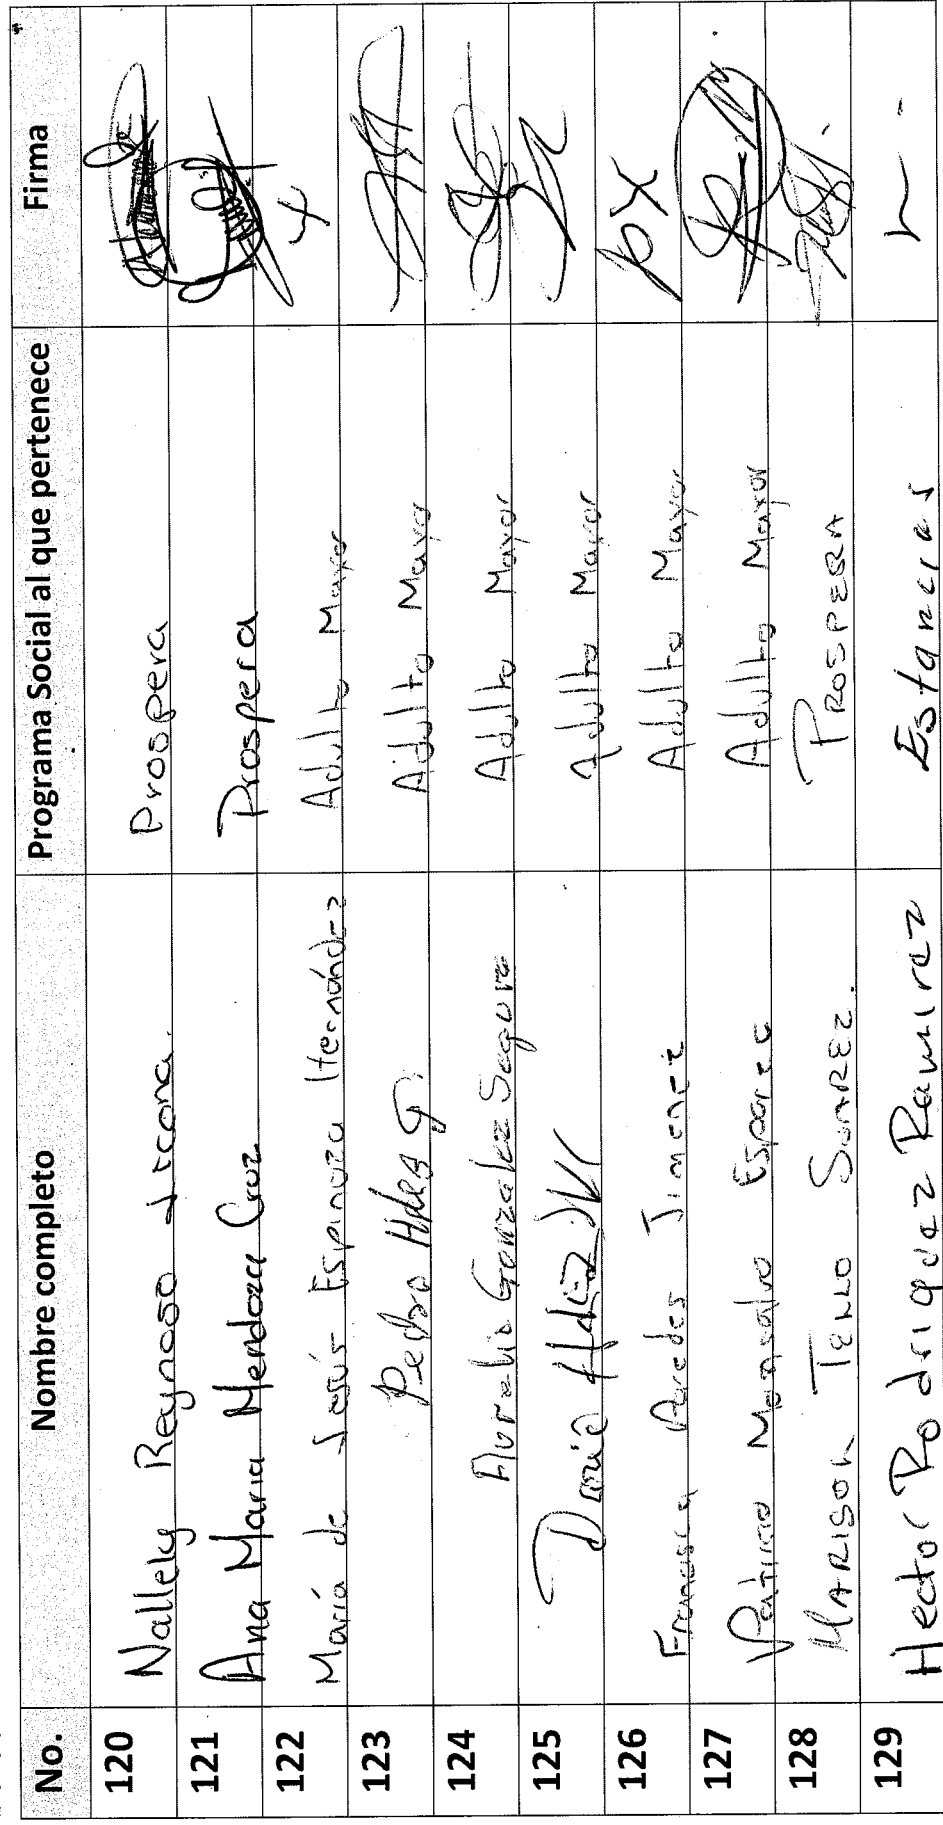 No. Nombre completo Programa Social al que pertenece Firma
120 Nallely Reynoso Licona. Prospera
121 Ana Maria Mendoza Cruz Prospera
122 María de Jesús Espinoza Hernández Adulto Mayor X
123 Pedro Hdez G. Adulto Mayor
124 Aurelio Gonzalez Segura Adulto Mayor
125 David Hdez Adulto Mayor
126 Francisca Paredes Jimenez Adulto Mayor
127 Monsalvo Adulto Mayor
128 MARISOL TELLO SUAREZ. PROSPERA
129 Hector Rodriguez Ramirez Estancias